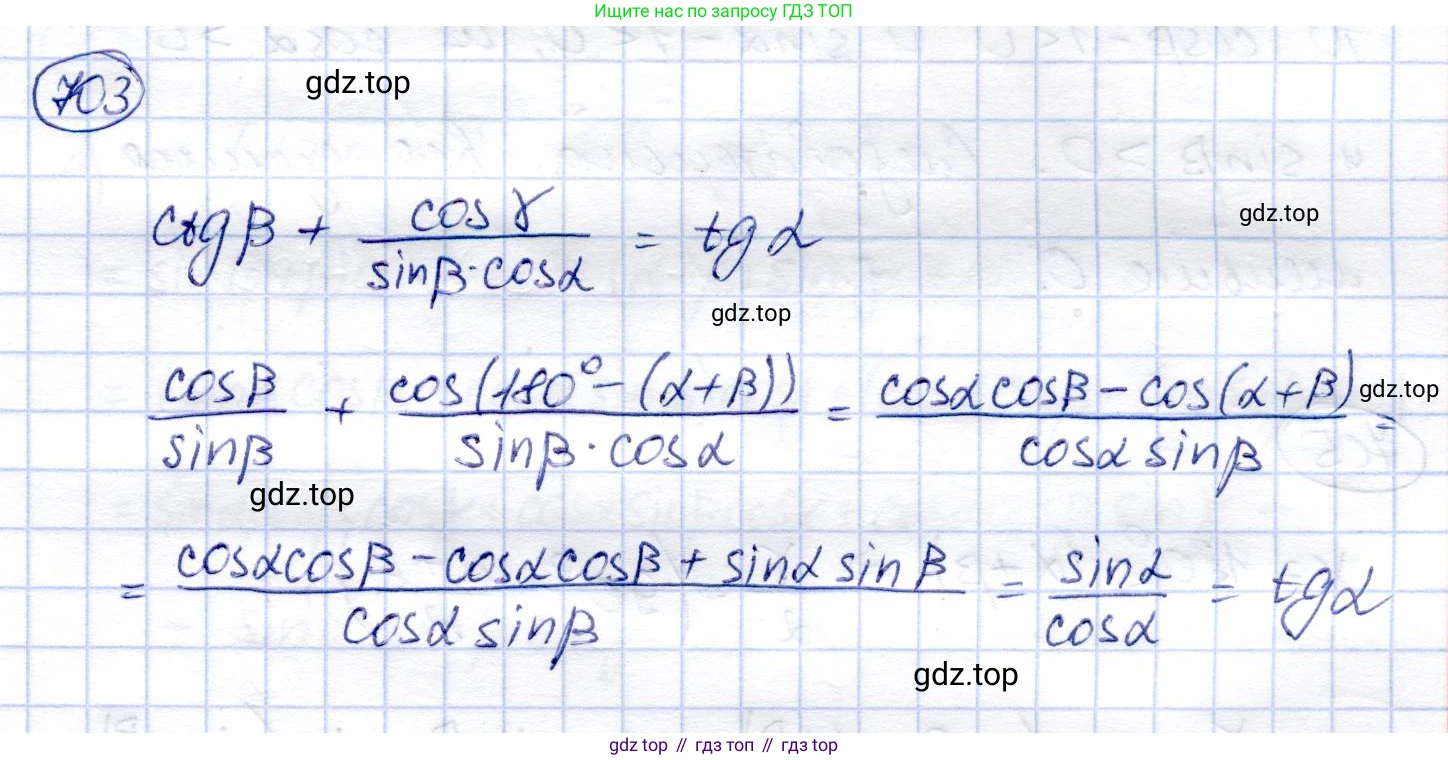 Ищите нас по запросу ГДЗ ТОП
703
gdz.top
ctg β + cos γ / (sin β · cos α) = tg α
gdz.top
gdz.top
cos β / sin β + cos(180° − (α + β)) / (sin β · cos α) = (cos α cos β − cos(α + β)) / (cos α sin β) =
gdz.top
gdz.top
= (cos α cos β − cos α cos β + sin α sin β) / (cos α sin β) = sin α / cos α = tg α
gdz.top
gdz top // гдз топ // гдз top